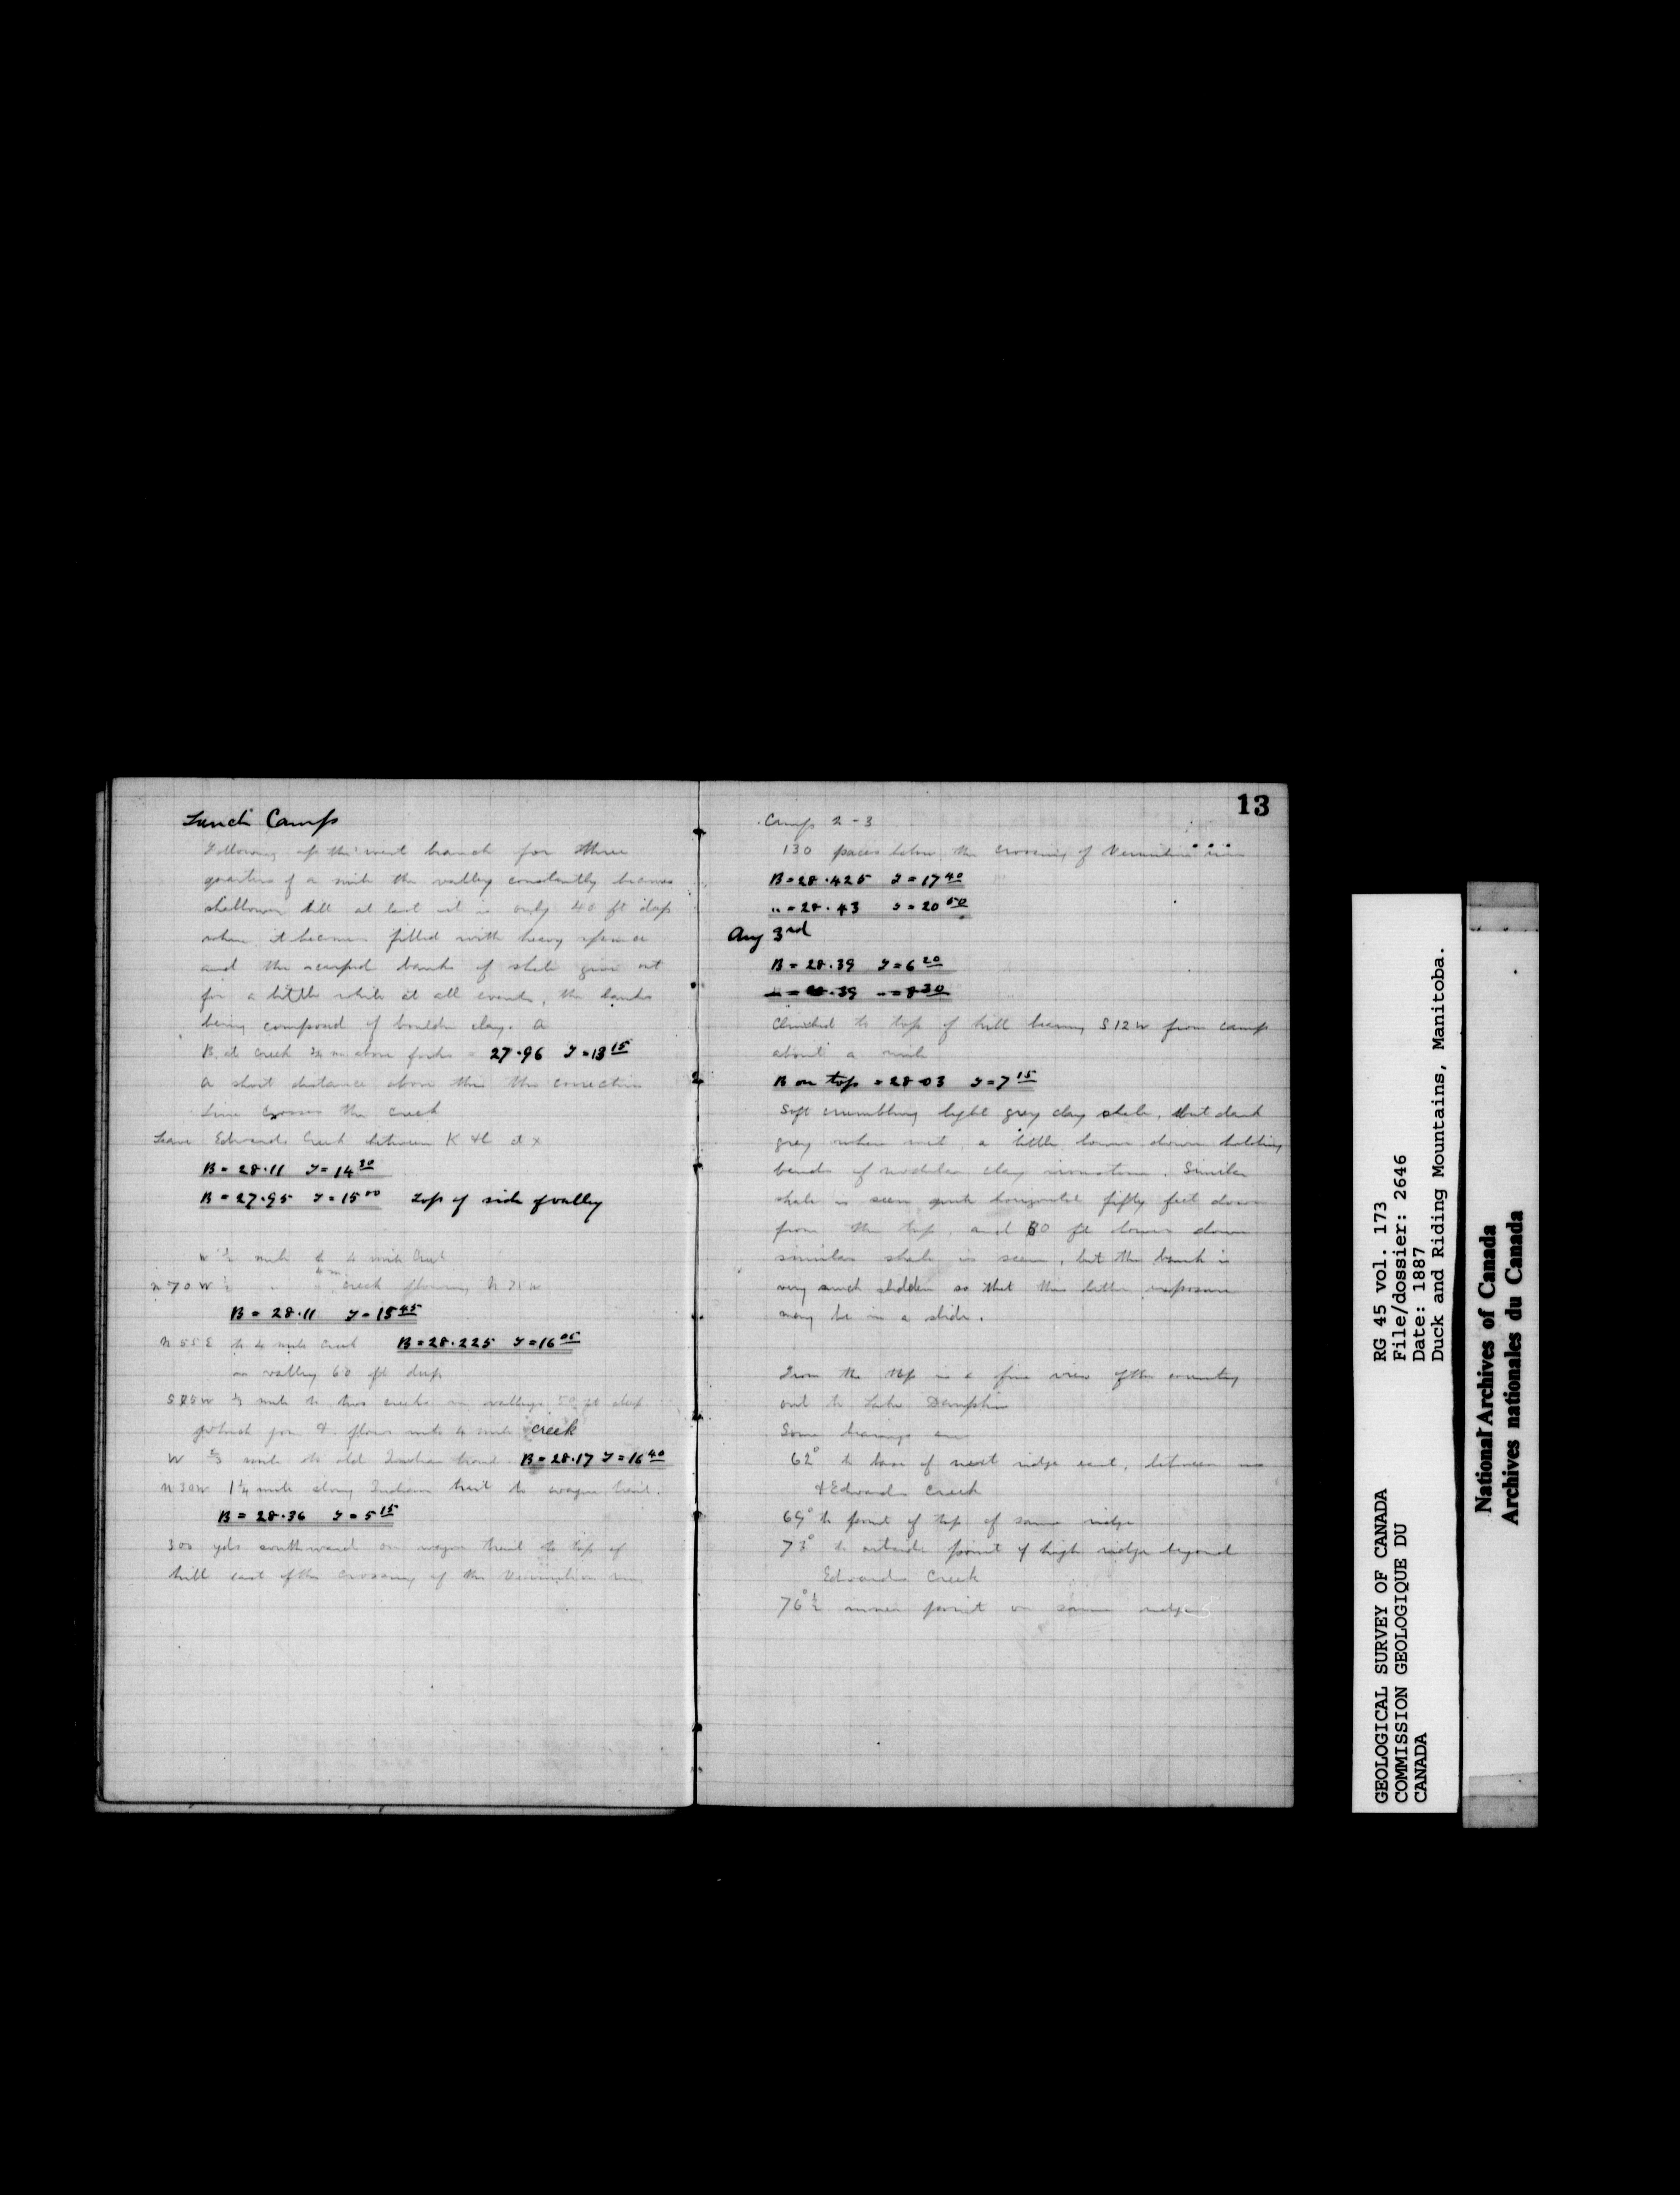 Lunch Camp
Following up the west branch for three
quarters of a mile the valley constantly becomes
shallower till at last it is only 40 ft deep
when it becomes filled with heavy
and the scarped banks of shale give out
for a little while at all events, the banks
being composed of boulder clay. A
B. at creek ¾ m above forks = 27.96 T=13 15
A short distance above this the correction
line crosses the creek
Leave Edwards Creek between K & L at x
B = 28.11 T = 14 30
B = 27.95 T = 15 00 Top of side of valley
W ½ mile to 4 mile Creek
N 70 W ½ " " 4 m. creek flowing N 75 W
B = 28.11 T = 15 45
N 55 E to 4 mile Creek B = 28.225 T = 16 05
in valley 60 ft deep
S 85 W ⅓ mile to two creeks in valleys 50 ft deep
which join & flow into 4 mile creek
W ⅔ mile to old Indian trail. B = 28.17 T = 16 40
N 30 W 1¼ mile along Indian trail to wagon trail.
B = 28.36 T = 5 15
300 yds southward on wagon trail to top of
hill east of the crossing of the Vermilion river
13
Camp 2-3
130 paces below the crossing of Vermilion river
B = 28.425 T = 17 40
" = 28.43 T = 20 50
Aug 3rd
B = 28.39 T = 6 20
" = 28.39 " = 8 30
Climbed to top of hill bearing S 12 W from camp
about a mile
B on top = 28.03 T = 7 15
Soft crumbling light grey clay shale, but dark
grey when wet, a little lower down holding
bands of nodular clay ironstone. Similar
shale is seen quite horizontal fifty feet down
from the top and 60 ft lower down
similar shale is seen, but the bank is
very much slidden so that this latter exposure
may be in a slide.
From the top is a fine view of the country
out to Lake Dauphin
Some bearings are
62° to base of next ridge east, between us
& Edwards Creek
69° to point of top of same ridge
73° to outside point of high ridge beyond
Edwards Creek
76°½ inner point on same ridge
GEOLOGICAL SURVEY OF CANADA
COMMISSION GEOLOGIQUE DU
CANADA
RG 45 vol. 173
File/dossier: 2646
Date: 1887
Duck and Riding Mountains, Manitoba.
National Archives of Canada
Archives nationales du Canada